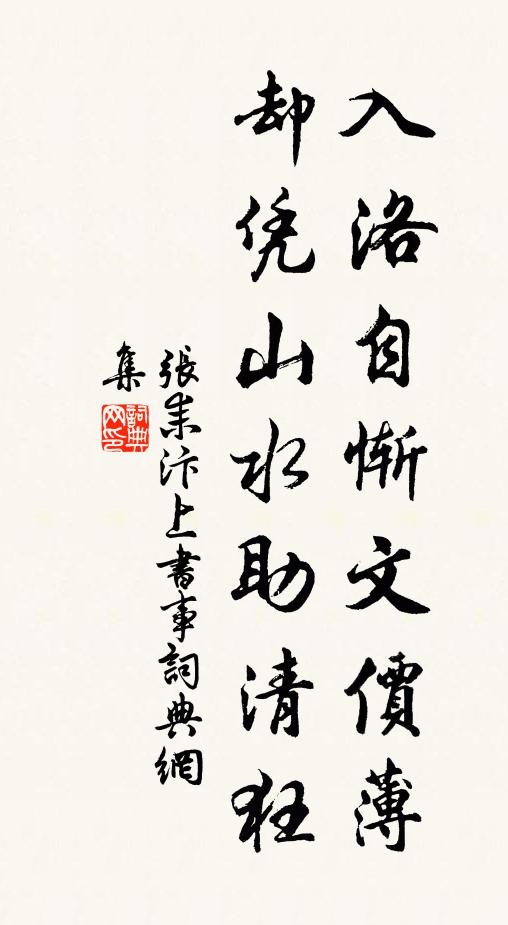 入洛自慚文價薄
却凭山水助清狂
張耒汴上書事詞典網
集
詞典网印